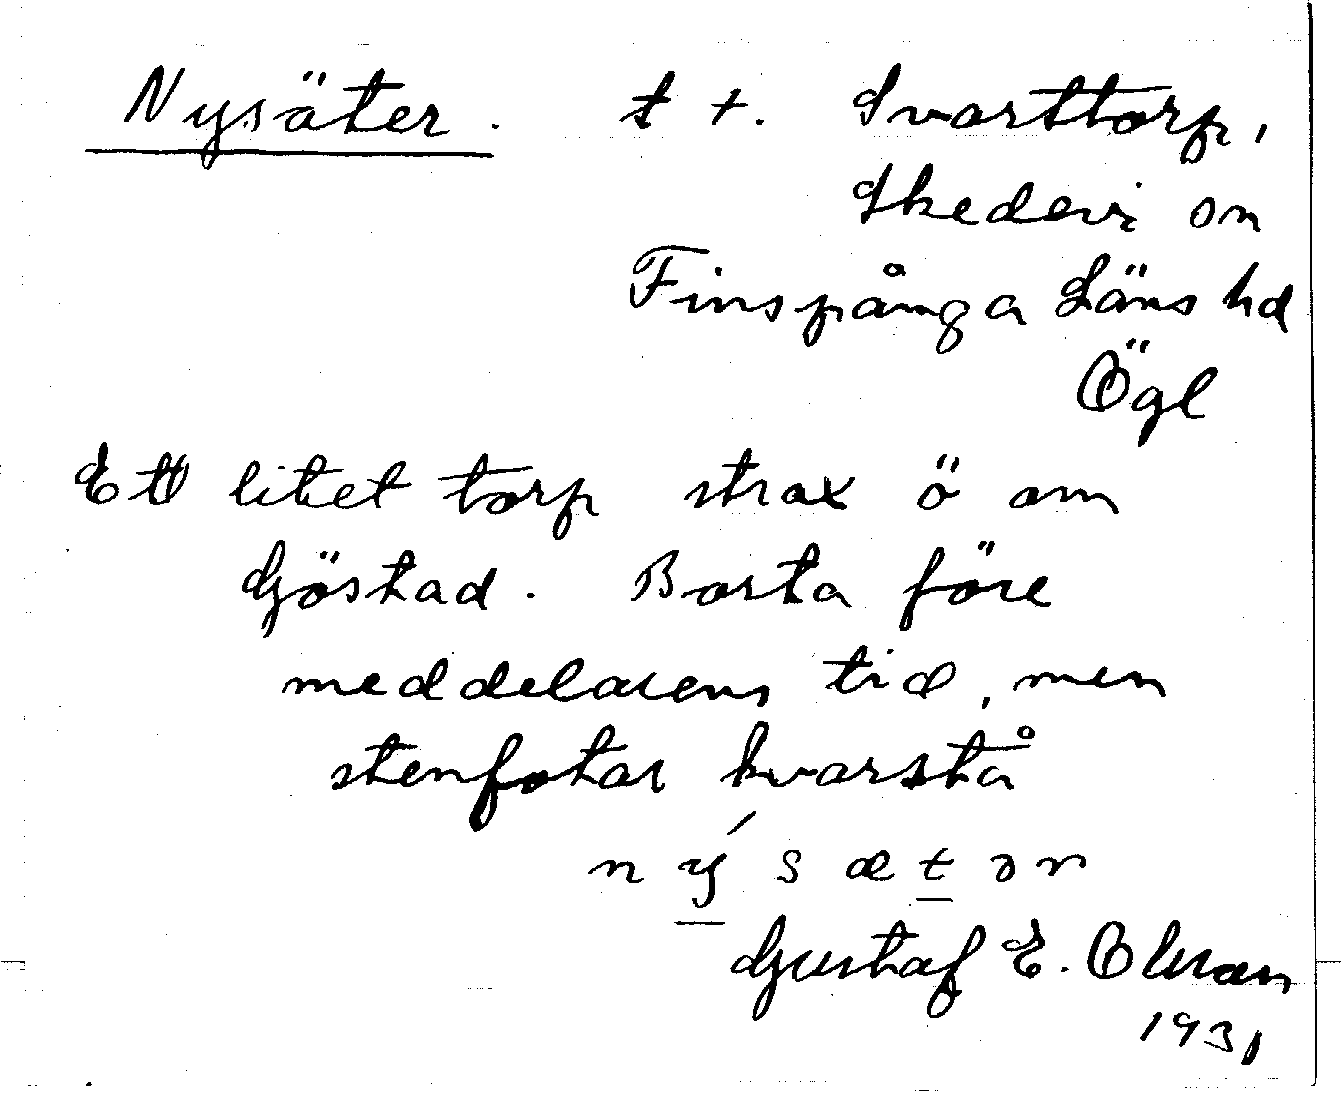 Nysäter. t t. Svarttorp,
Skedevi sn
Finspånga Läns hd
Ögl
Ett litet torp strax ö om
Gjöstad. Borta före
meddelarens tid, men
stenfotar kvarstå
n ý s æ t ə r
Gustaf E. Olsson
1931